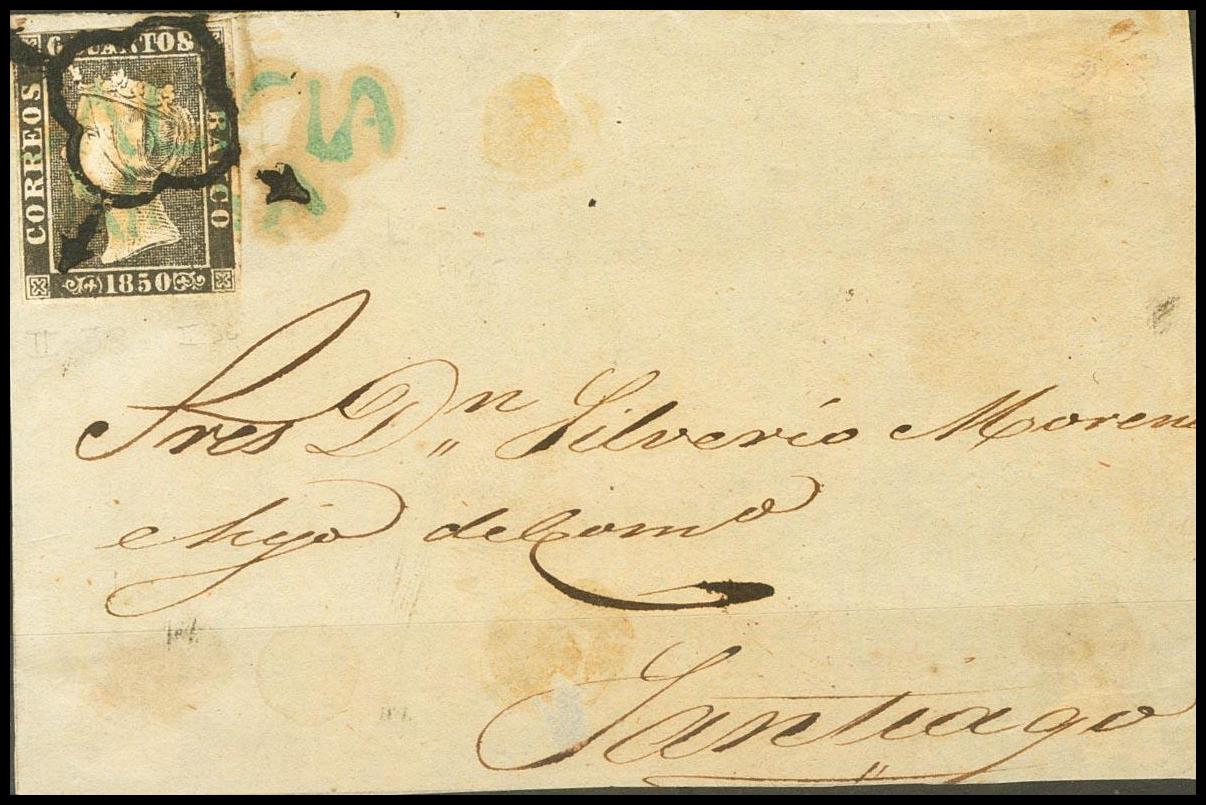 6 CUARTOS
CORREOS
FRANCO
1850
Sres Dn Silverio Moreno
e hijo del Comº
Santiago